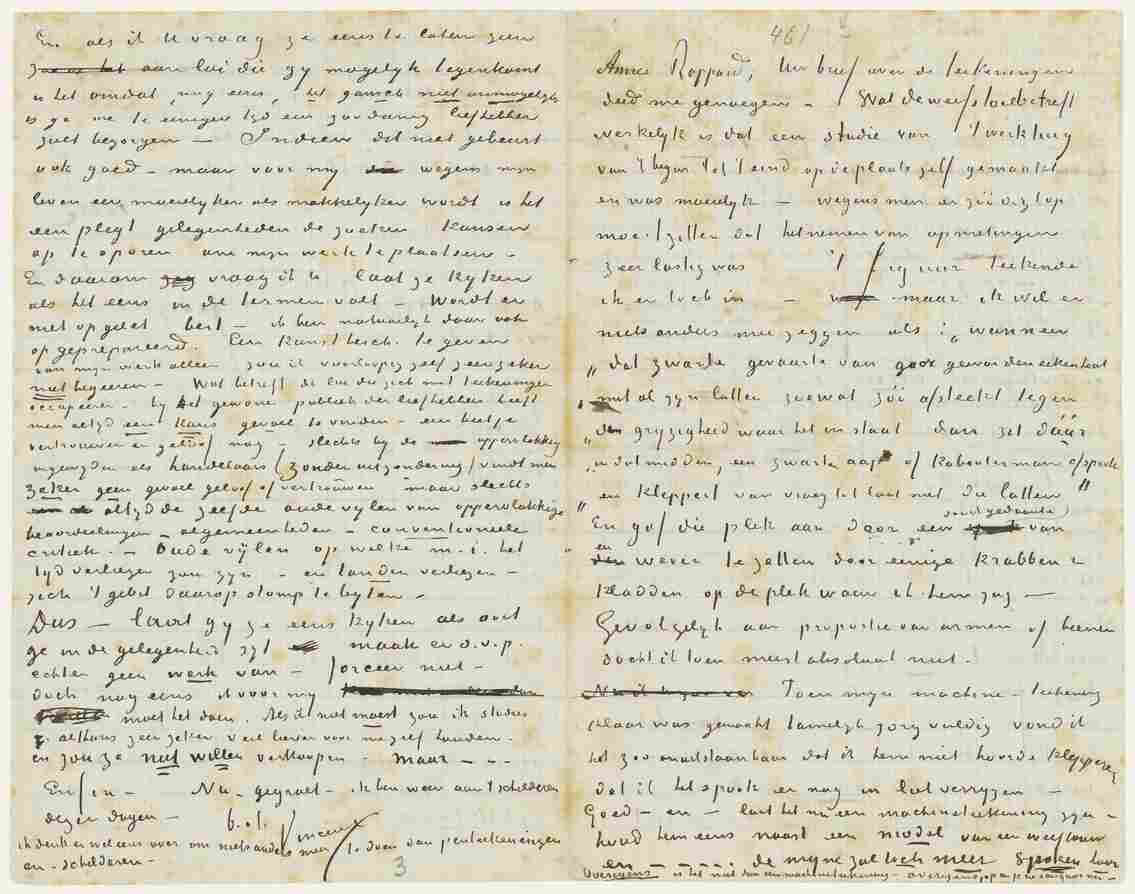 En als ik U vraag ze eens te laten zien
aan lui die gy mogelyk tegenkomt
is het omdat, nog eens, het gansch niet onmogelyk
is ge me te eeniger tyd een zoodanig liefhebber
zult bezorgen – Indien dit niet gebeurt
ook goed – maar voor my wegens myn
leven eer moeielyker als makkelyker wordt is het
een pligt gelegenheden te zoeken kansen
op te sporen om myn werk te plaatsen –
En daarom vraag ik U laat ze kyken
als het eens in de termen valt – Wordt er
niet op gelet best – ik ben natuurlyk daar ook
op geprepareerd. Een kunstbesch. te geven
van myn werk alleen zou ik voorloopig zelf zeer zeker
niet begeeren – Wat betreft de lui die zich met teekeningen
occupeeren – by het gewone publiek der liefhebbers heeft
men altyd een kans gevoel te vinden – een beetje
vertrouwen en geloof nog – slechts by de oppervlakkig
ingewyden als handelaars (zonder uitzondering) vindt men
zeker geen gevoel geloof of vertrouwen maar slechts
altyd de zelfde oude vylen van oppervlakkige
beoordeelingen – algemeenheden – conventioneele
critiek. – Oude vylen op welke m.i. het
tyd verliezen zou zyn – en tanden verliezen –
zich 't gebit daarop stomp te byten –
Dus – laat gy ze eens kyken als ooit
ge in de gelegenheid zyt maak er s.v.p.
echter geen werk van – forceer niet –
doch nog eens ik voor my
moet het doen. Als ik niet moest zou ik studies
althans zeer zeker veel liever voor mezelf houden.
en zou ze niet willen verkoopen – maar – . .
Enfin – Nu gegroet – ik ben weer aan 't schilderen
dezer dagen – b. à t. Vincent
ik denk er wel eens over om niets anders meer te doen dan penteekeningen
en – schilderen –
3
461
Amice Rappard, Uw brief over de teekeningen
deed me genoegen – Wat de weefstoel betreft
werkelyk is dat een studie van 't werktuig
van 't begin tot 't eind op de plaats zelf gemaakt
en was moeielyk – wegens men er zóó digt op
moet zitten dat het nemen van opmetingen
zeer lastig was 't figuur teekende
ik er toch in – maar ik wil er
niets anders mee zeggen als: „wanneer
„dat zwarte gevaarte van goor geworden eikenhout
„met al zyn latten zoowat zóó afsteekt tegen
„de gryzigheid waar het in staat dan zit dáár
„in dat midden, een zwarte aap of kabouterman of spook
„en kleppert van vroeg tot laat met die latten"
„En gaf die plek aan door een soort gedaante van
een wever te zetten door eenige krabben &
kladden op de plek waar ik hem zag –
Gevolgelyk aan proportie van armen of beenen
dacht ik toen meest absoluut niet.
Toen myn machine-teekening
klaar was gemaakt tamelyk zorgvuldig vond ik
het zoo onuitstaanbaar dat ik hem niet hoorde klepperen
dat ik het spook er nog in liet verryzen –
Goed – en – laat het nu een machineteekening zyn –
houd hem eens naast een model van een weeftouw
en – – . . . . de myne zal toch meer spoken hoor